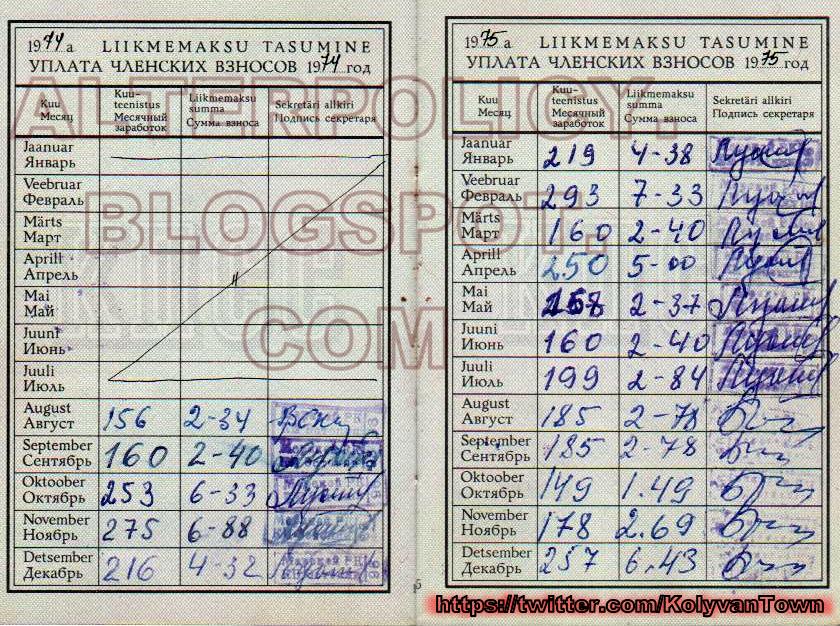 1974 a. LIIKMEMAKSU TASUMINE
УПЛАТА ЧЛЕНСКИХ ВЗНОСОВ 1974 год
Kuu
Месяц
Kuu-
teenistus
Месячный
заработок
Liikmemaksu
summa
Сумма взноса
Sekretäri allkiri
Подпись секретаря
Jaanuar
Январь
Veebruar
Февраль
Märts
Март
Aprill
Апрель
Mai
Май
Juuni
Июнь
Juuli
Июль
August
Август 156 2-34
September
Сентябрь 160 2-40
Oktoober
Октябрь 253 6-33
November
Ноябрь 275 6-88
Detsember
Декабрь 216 4-32
1975 a. LIIKMEMAKSU TASUMINE
УПЛАТА ЧЛЕНСКИХ ВЗНОСОВ 1975 год
Kuu
Месяц
Kuu-
teenistus
Месячный
заработок
Liikmemaksu
summa
Сумма взноса
Sekretäri allkiri
Подпись секретаря
Jaanuar
Январь 219 4-38
Veebruar
Февраль 293 7-33
Märts
Март 160 2-40
Aprill
Апрель 250 5-00
Mai
Май 2-37
Juuni
Июнь 160 2-40
Juuli
Июль 199 2-84
August
Август 185 2-78
September
Сентябрь 185 2-78
Oktoober
Октябрь 149 1.49
November
Ноябрь 178 2.69
Detsember
Декабрь 257 6.43
5
ALTERPOLICY.
BLOGSPOT.
COM
https://twitter.com/KolyvanTown